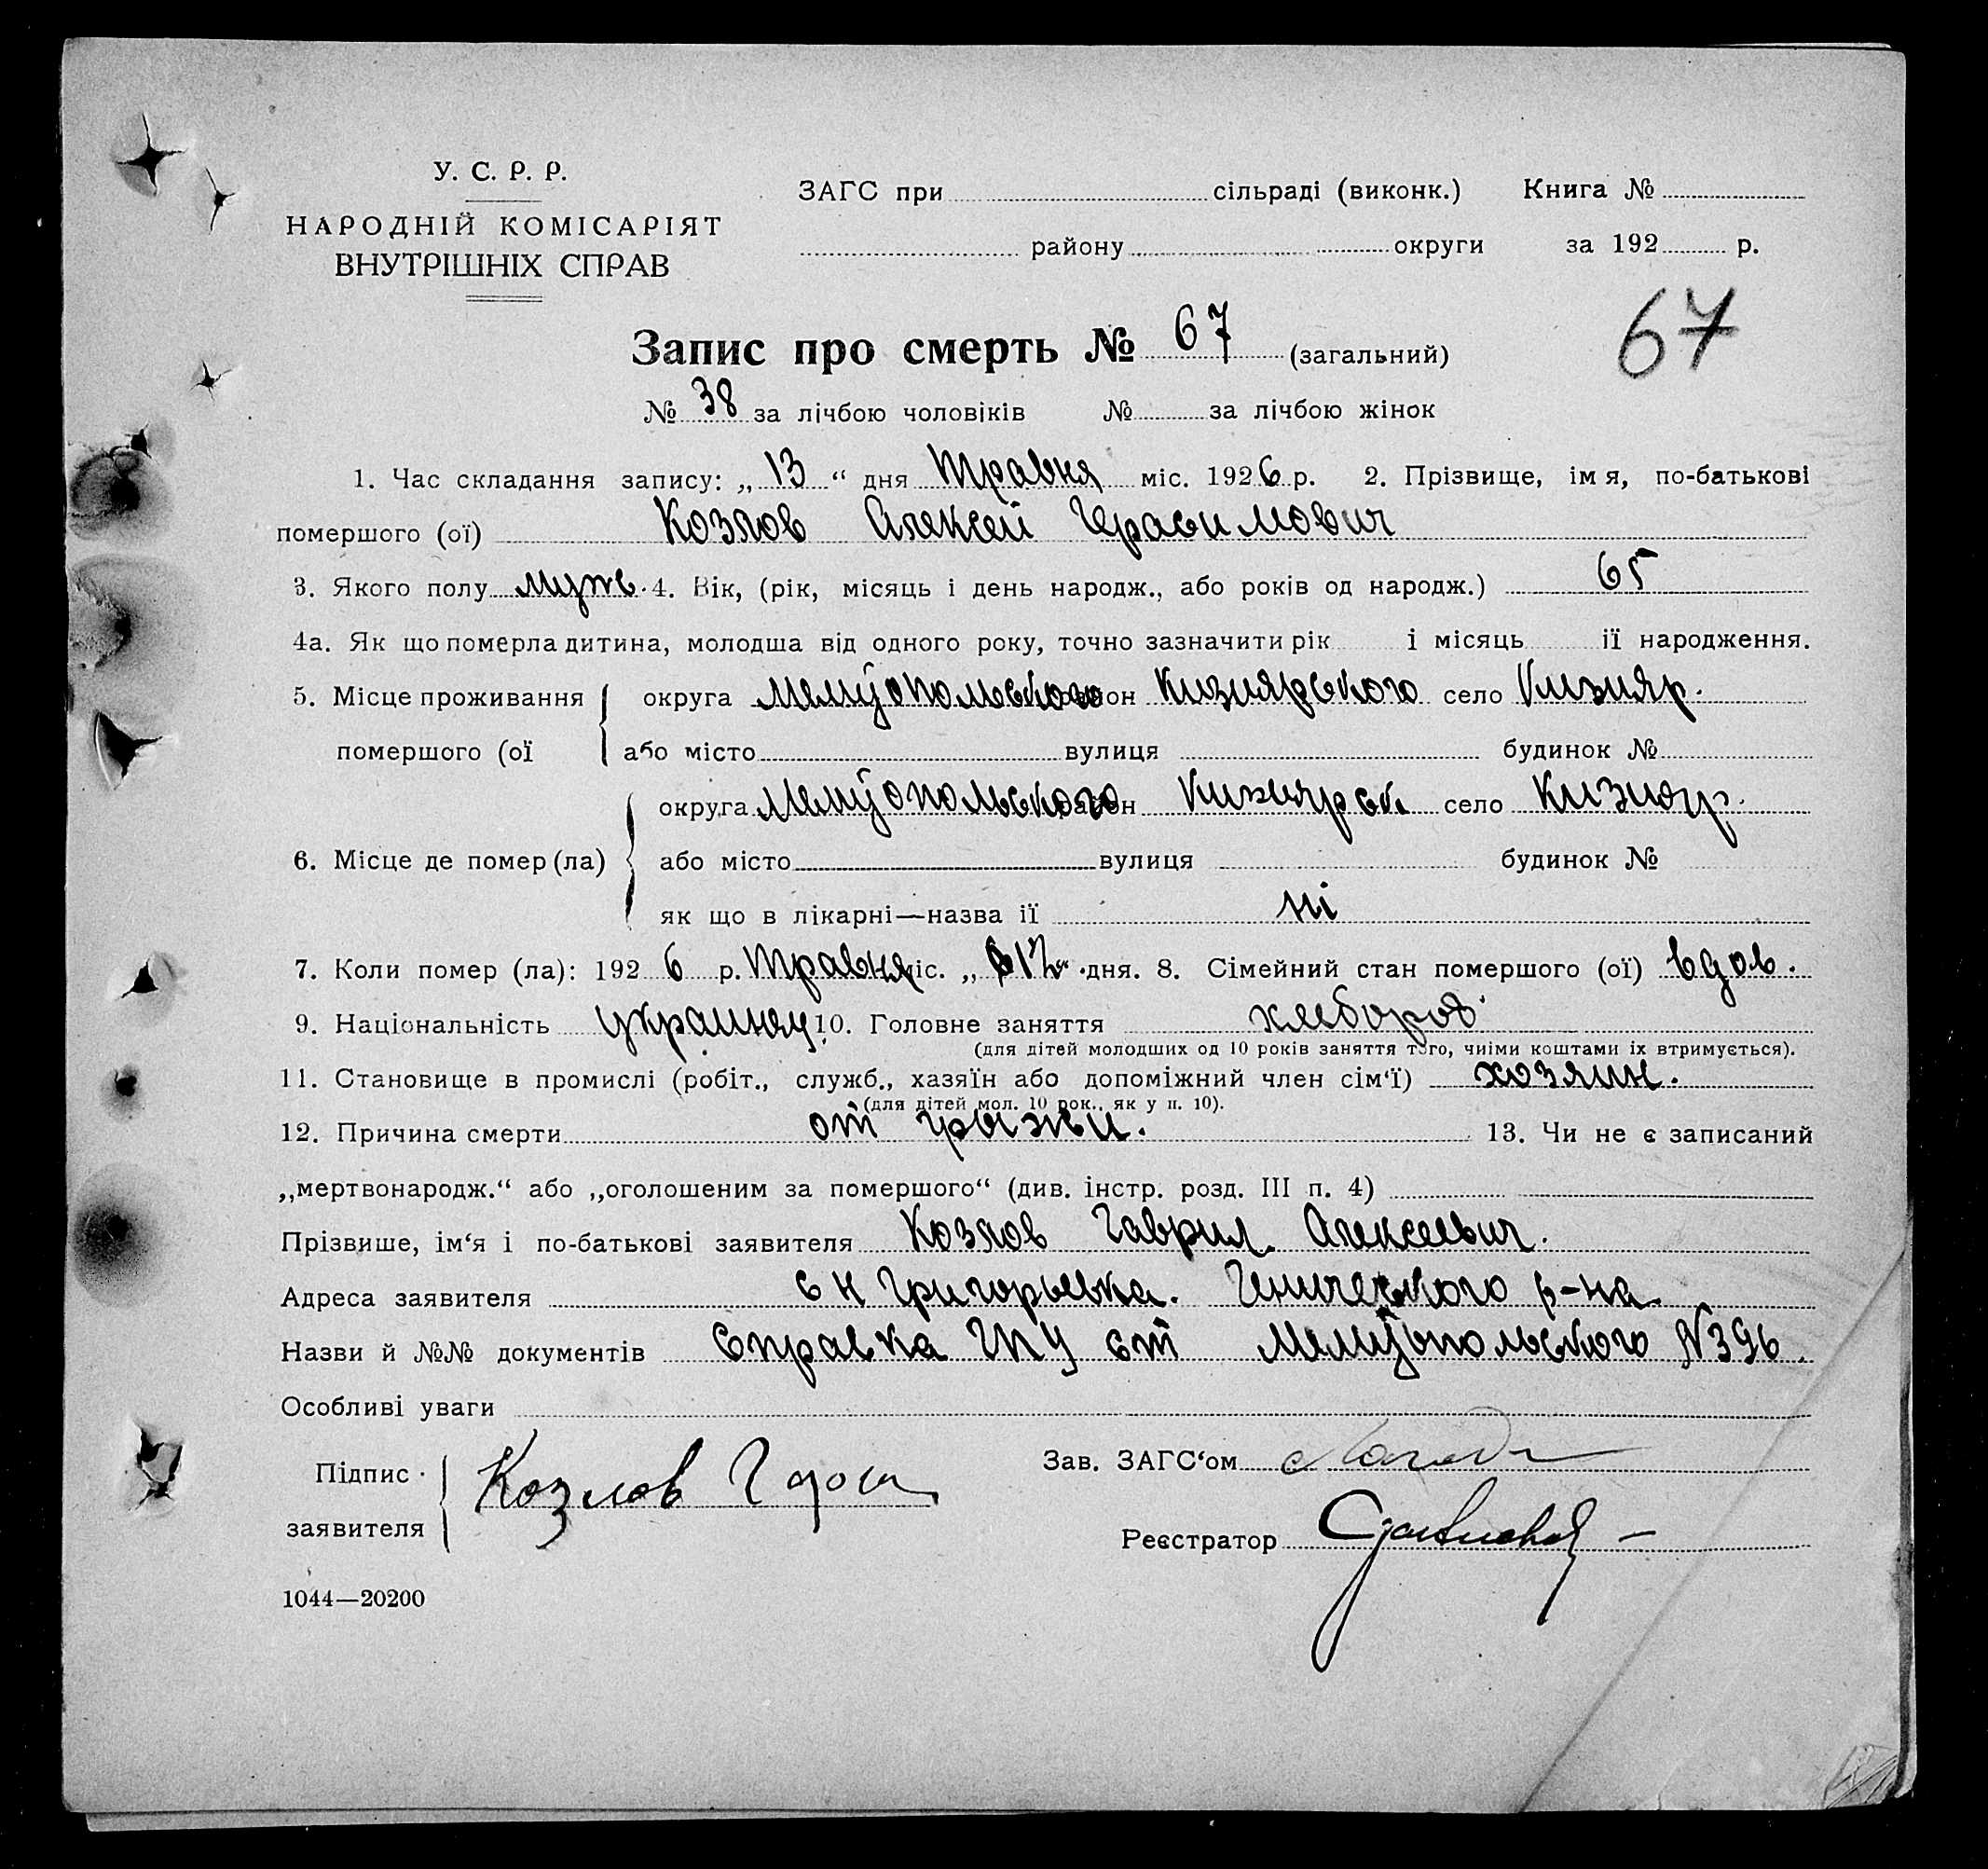 У. С. Р. Р.
НАРОДНІЙ КОМІСАРІЯТ
ВНУТРІШНІХ СПРАВ
ЗАГС при сільраді (виконк.) Книга №
району округи за 192 р.
67
Запис про смерть № 67 (загальний)
№ 38 за лічбою чоловіків № за лічбою жінок
1. Час складання запису: „13“ дня травня міс. 1926 р. 2. Прізвище, ім я, по-батькові
помершого (ої) Козлов Алексей Герасимович
3. Якого полу муж. 4. Вік, (рік, місяць і день народж., або років од народж.) 65
4а. Як що померла дитина, молодша від одного року, точно зазначити рік і місяць ії народження.
5. Місце проживання округа Мелитопольского район Кизиярського село Кизияр.
помершого (ої або місто вулиця будинок №
округа Мелитопольского район Кизиярськ село Кизияр.
6. Місце де помер (ла) або місто вулиця будинок №
як що в лікарні—назва ії ні
7. Коли помер (ла): 1926 р. травня міс. „12“ дня. 8. Сімейний стан помершого (ої) вдов.
9. Національність 10. Головне заняття хлебороб
(для дітей молодших од 10 років заняття того, чиіми коштами іх втримується).
11. Становище в промислі (робіт., служб., хазяїн або допоміжний член сім'ї) хозяин.
(для дітей мол. 10 рок., як у п. 10).
12. Причина смерти от грыжи. 13. Чи не є записаний
„мертвонародж.“ або „оголошеним за помершого“ (див. інстр. розд. III п. 4)
Прізвише, ім'я і по-батькові заявителя Козлов Гаврил Алексеевич.
Адреса заявителя с Н Григорьевка. Генического р-на
Назви й №№ документів Справка ГПУ ст Мелитопольского N 396.
Особливі уваги
Підпис Козлов Зав. ЗАГС'ом
заявителя Реєстратор
1044—20200